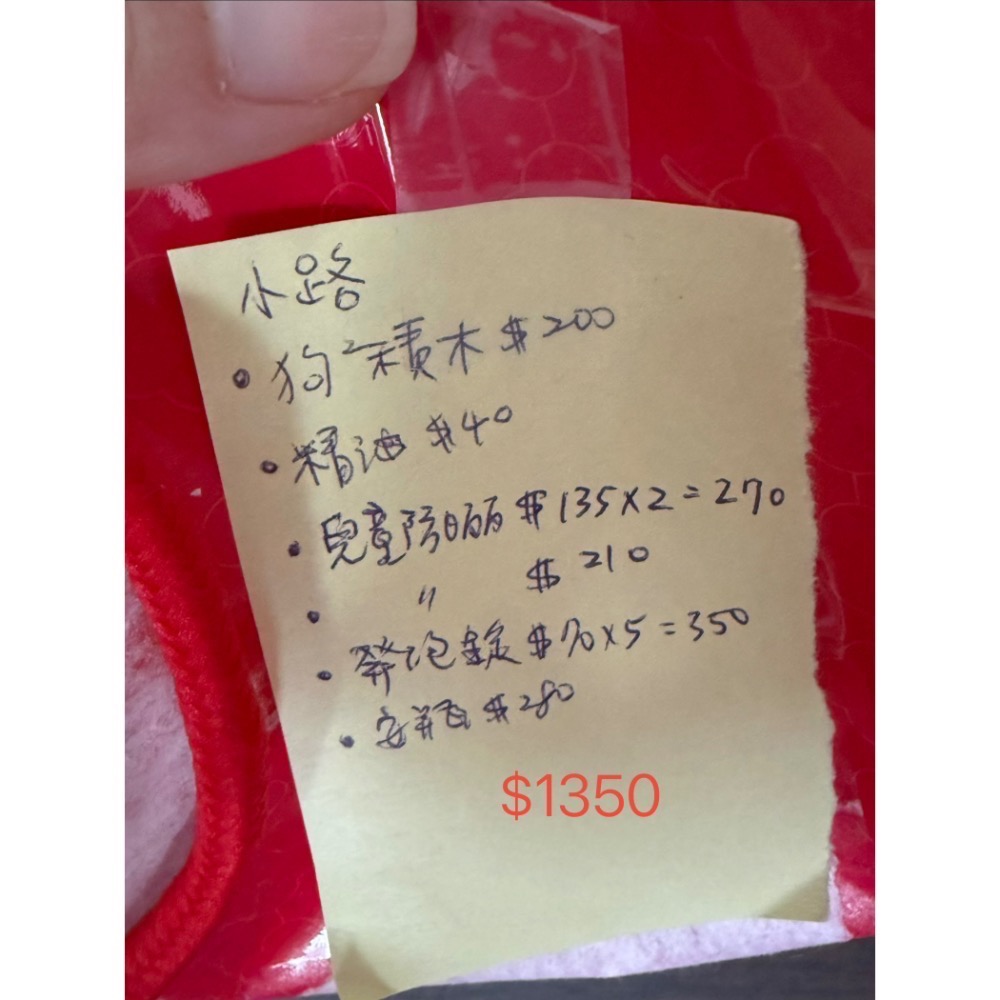 小路
• 狗²積木 $200
• 精油 $40
• 兒童防曬 $135×2=270
• 〃 $210
• 發泡錠 $70×5=350
• 安瓶 $280
$1350